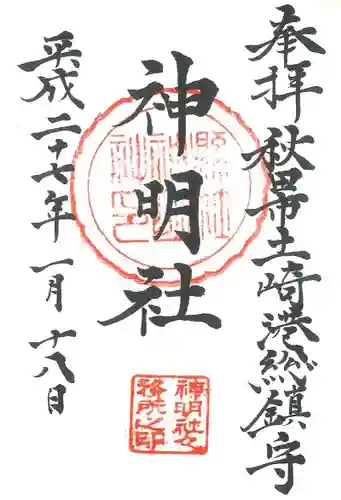 奉拝 秋田市土崎港総鎮守
神明社
平成二十七年一月十八日
神明社之
務所之印